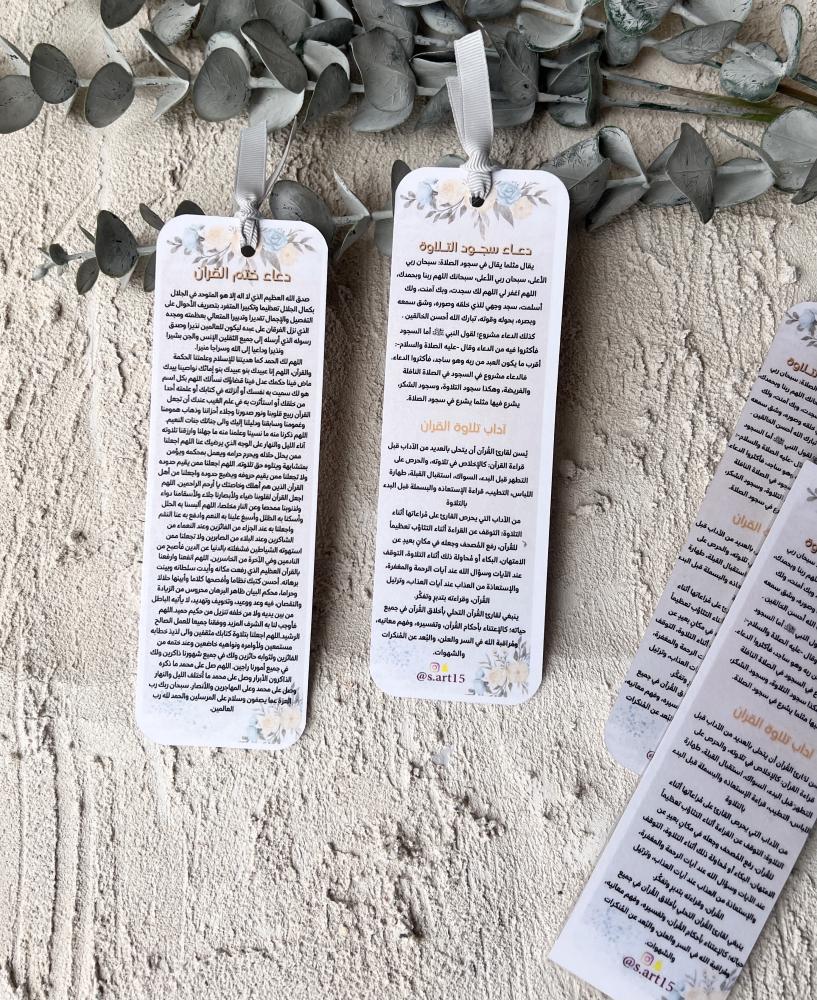 دعاء ختم القرآن
صدق الله العظيم الذي لا اله إلا هو المتوحد في الجلال
بكمال الجلال تعظيما وتكبيرا المتفرد بتصريف الأحوال على
التفصيل والإجمال تقديرا وتدبيرا المتعالي بعظمته ومجده
الذي نزل الفرقان على عبده ليكون للعالمين نذيرا وصدق
رسوله الذي أرسله إلى جميع الثقلين الإنس والجن بشيرا
ونذيرا وداعيا إلى الله وسراجا منيرا.
اللهم لك الحمد كما هديتنا للإسلام وعلمتنا الحكمة
والقرآن، اللهم إنا عبيدك بنو عبيدك بنو إمائك نواصينا بيدك
ماض فينا حكمك عدل فينا قضاؤك نسألك اللهم بكل اسم
هو لك سميت به نفسك أو أنزلته في كتابك أو علمته أحدا
من خلقك أو استأثرت به في علم الغيب عندك أن تجعل
القرآن ربيع قلوبنا ونور صدورنا وجلاء أحزاننا وذهاب همومنا
وغمومنا وسابقنا ودليلنا إليك والى جناتك جنات النعيم.
اللهم ذكرنا منه ما نسينا وعلمنا منه ما جهلنا وارزقنا تلاوته
آناء الليل والنهار على الوجه الذي يرضيك عنا اللهم اجعلنا
ممن يحلل حلاله ويحرم حرامه ويعمل بمحكمه ويؤمن
بمتشابهة ويتلوه حق تلاوته. اللهم اجعلنا ممن يقيم حدوده
ولا تجعلنا ممن يقيم حروفه ويضيع حدوده واجعلنا من أهل
القرآن الذين هم أهلك وخاصتك يا أرحم الراحمين. اللهم
اجعل القرآن لقلوبنا ضياء ولأبصارنا جلاء ولأسقامنا دواء
ولذنوبنا ممحصا وعن النار مخلصا، اللهم ألبسنا به الحلل
وأسكنا به الظلل وأسبغ علينا به النعم وادفع به عنا النقم
واجعلنا به عند الجزاء من الفائزين وعند النعماء من
الشاكرين وعند البلاء من الصابرين ولا تجعلنا ممن
استهوته الشياطين فشغلته بالدنيا عن الدين فأصبح من
النادمين وفي الآخرة من الخاسرين. اللهم انفعنا وارفعنا
بالقرآن العظيم الذي رفعت مكانه وأيدت سلطانه وبينت
برهانه، أحسن كتبك نظاما وأفصحها كلاما وأبينها حلالا
وحراما، محكم البيان ظاهر البرهان محروس من الزيادة
والنقصان، فيه وعد ووعيد، وتخويف وتهديد، لا يأتيه الباطل
من بين يديه ولا من خلفه تنزيل من حكيم حميد.اللهم
فأوجب لنا به الشرف المزيد ووفقنا جميعا للعمل الصالح
الرشيد.اللهم اجعلنا بتلاوة كتابك مثقفين والى لذيذ خطابه
مستمعين ولأوامره ونواهيه خاضعين وعند ختمه من
الفائزين ولثوابه حائزين ولك في جميع شهورنا ذاكرين ولك
في جميع أمورنا راجين. اللهم صل على محمد ما ذكره
الذاكرون الأبرار وصل على محمد ما أختلف الليل والنهار
وصل على محمد وعلى المهاجرين والأنصار. سبحان ربك رب
العزة عما يصفون وسلام على المرسلين والحمد لله رب
العالمين.
دعاء سجود التلاوة
يقال مثلما يقال في سجود الصلاة: سبحان ربي
الأعلى، سبحان ربي الأعلى، سبحانك اللهم ربنا وبحمدك،
اللهم اغفر لي اللهم لك سجدت، وبك آمنت، ولك
أسلمت، سجد وجهي للذي خلقه وصوره، وشق سمعه
وبصره، بحوله وقوته، تبارك الله أحسن الخالقين .
كذلك الدعاء مشروع؛ لقول النبي ﷺ أما السجود
فأكثروا فيه من الدعاء وقال -عليه الصلاة والسلام-:
أقرب ما يكون العبد من ربه وهو ساجد، فأكثروا الدعاء.
فالدعاء مشروع في السجود في الصلاة النافلة
والفريضة، وهكذا سجود التلاوة، وسجود الشكر،
يشرع فيها مثلما يشرع في سجود الصلاة.
آداب تلاوة القرآن
يُسن لقارئ القُرآن أن يتحلى بالعديد من الآداب قبل
قراءة القرآن: كالإخلاص في تلاوته، والحرص على
التطهر قبل البدء، السواك، استقبال القبلة، طهارة
اللباس، التطييب، قراءة الإستعاذه والبسملة قبل البدء
بالتلاوة
من الآداب التي يحرص القارئ على مُراعاتها أثناء
التلاوة: التوقف عن القراءة أثناء التثاؤب تعظيماً
للقُرآن، رفع المُصحف وجعله في مكانٍ بعيدٍ عن
الامتهان، البكاء أو مُحاولة ذلك أثناء التلاوة، التوقف
عند الآيات وسؤال الله عند آيات الرحمة والمغفرة،
والإستعاذة من العذاب عند آيات العذاب، وترتيل
القُرآن، وقراءته بتدبرٍ وتفكُّر.
ينبغي لقارئ القُرآن التحلي بأخلاق القُرآن في جميع
حياته؛ كالإعتناء بأحكام القُرآن، وتفسيره، وفهم معانيه،
ومُراقبة الله في السر والعلن، والبُعد عن المُنكرات
والشهوات.
@s.art15
آداب تلاوة القرآن
@s.art15